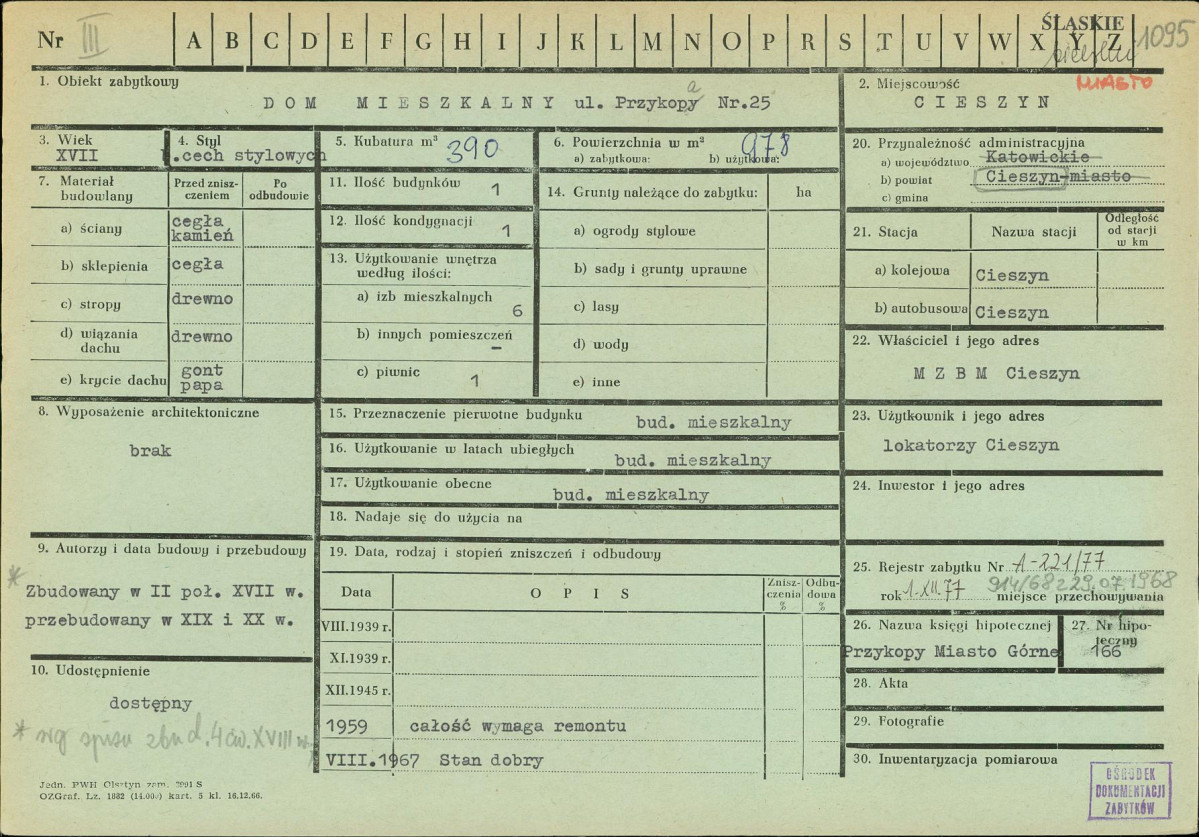 Nr III A B C D E F G H I J K L M N O P R S T U V W X Y Z
ŚLĄSKIE
1095
cieszyn
MIASTO
1. Obiekt zabytkowy
DOM MIESZKALNY ul. Przykopy Nr.25
a
2. Miejscowość
CIESZYN
3. Wiek
XVII
4. Styl
.cech stylowych
5. Kubatura m³ 390
6. Powierzchnia w m² 978
a) zabytkowa: b) użytkowa:
20. Przynależność administracyjna
a) województwo Katowickie
b) powiat Cieszyn-miasto
c) gmina
7. Materiał budowlany
Przed zniszczeniem
Po odbudowie
a) ściany cegła kamień
b) sklepienia cegła
c) stropy drewno
d) wiązania dachu drewno
e) krycie dachu gont papa
11. Ilość budynków 1
12. Ilość kondygnacji 1
13. Użytkowanie wnętrza według ilości:
a) izb mieszkalnych 6
b) innych pomieszczeń –
c) piwnic 1
14. Grunty należące do zabytku: ha
a) ogrody stylowe
b) sady i grunty uprawne
c) lasy
d) wody
e) inne
21. Stacja
Nazwa stacji
Odległość od stacji w km
a) kolejowa Cieszyn
b) autobusowa Cieszyn
22. Właściciel i jego adres
M Z B M Cieszyn
8. Wyposażenie architektoniczne
brak
15. Przeznaczenie pierwotne budynku bud. mieszkalny
16. Użytkowanie w latach ubiegłych bud. mieszkalny
17. Użytkowanie obecne bud. mieszkalny
18. Nadaje się do użycia na
23. Użytkownik i jego adres
lokatorzy Cieszyn
24. Inwestor i jego adres
9. Autorzy i data budowy i przebudowy
* Zbudowany w II poł. XVII w.
przebudowany w XIX i XX w.
10. Udostępnienie
dostępny
* wg spisu zbud. 4 ćw. XVIII w.
19. Data, rodzaj i stopień zniszczeń i odbudowy
Data
OPIS
Zniszczenia %
Odbudowa %
VIII.1939 r.
XI.1939 r.
XII.1945 r.
1959 całość wymaga remontu
VIII.1967 Stan dobry
25. Rejestr zabytku Nr A-221/77
914/68 z 29.07.1968
rok 1.XII.77 miejsce przechowywania
26. Nazwa księgi hipotecznej
Przykopy Miasto Górne
27. Nr hipoteczny
166
28. Akta
29. Fotografie
30. Inwentaryzacja pomiarowa
OŚRODEK
DOKUMENTACJI
ZABYTKÓW
Jedn. PWH Olsztyn zam. 2991 S
OZGraf. Lz. 1882 (14.000) kart. 5 kl. 16.12.66.